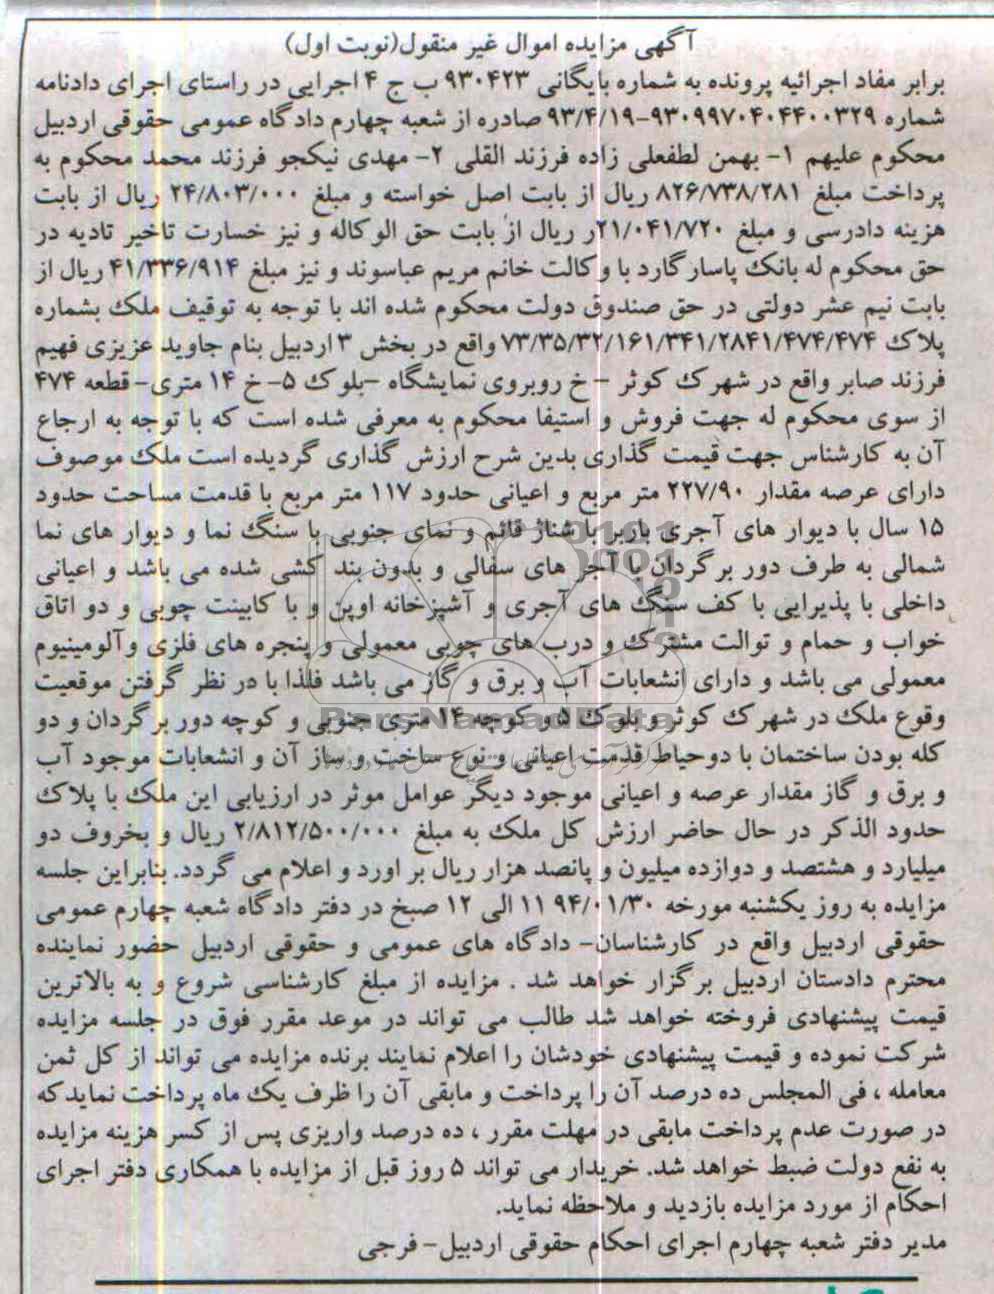 آگهی مزایده اموال غیر منقول(نوبت اول)
برابر مفاد اجرائیه پرونده به شماره بایگانی ۹۳۰۴۲۳ ب ج ۴ اجرایی در راستای اجرای دادنامه
شماره ۹۳۰۹۹۷۰۴۰۴۴۰۰۳۲۹-۹۳/۴/۱۹ صادره از شعبه چهارم دادگاه عمومی حقوقی اردبیل
محکوم علیهم ۱- بهمن لطفعلی زاده فرزند القلی ۲- مهدی نیکجو فرزند محمد محکوم به
پرداخت مبلغ ۸۲۶/۷۳۸/۲۸۱ ریال از بابت اصل خواسته و مبلغ ۲۴/۸۰۳/۰۰۰ ریال از بابت
هزینه دادرسی و مبلغ ۲۱/۰۴۱/۷۲۰ر ریال از بابت حق الوکاله و نیز خسارت تاخیر تادیه در
حق محکوم له بانک پاسارگارد با وکالت خانم مریم عباسوند و نیز مبلغ ۴۱/۳۳۶/۹۱۴ ریال از
بابت نیم عشر دولتی در حق صندوق دولت محکوم شده اند با توجه به توقیف ملک بشماره
پلاک ۷۳/۳۵/۳۲/۱۶۱/۳۴۱/۲۸۴۱/۴۷۴/۴۷۴ واقع در بخش ۳ اردبیل بنام جاوید عزیزی فهیم
فرزند صابر واقع در شهرک کوثر – خ روبروی نمایشگاه –بلوک ۵-خ ۱۴ متری- قطعه ۴۷۴
از سوی محکوم له جهت فروش و استیفا محکوم به معرفی شده است که با توجه به ارجاع
آن به کارشناس جهت قیمت گذاری بدین شرح ارزش گذاری گردیده است ملک موصوف
دارای عرصه مقدار ۲۲۷/۹۰ متر مربع و اعیانی حدود ۱۱۷ متر مربع با قدمت مساحت حدود
۱۵ سال با دیوار های آجری باربر با شناژ قائم و نمای جنوبی با سنگ نما و دیوار های نما
شمالی به طرف دور برگردان با آجر های سفالی و بدون بند کشی شده می باشد و اعیانی
داخلی با پذیرایی با کف سنگ های آجری و آشپزخانه اوپن و با کابینت چوبی و دو اتاق
خواب و حمام و توالت مشترک و درب های چوبی معمولی و پنجره های فلزی وآلومینیوم
معمولی می باشد و دارای انشعابات آب و برق و گاز می باشد فلذا با در نظر گرفتن موقعیت
وقوع ملک در شهرک کوثر و بلوک ۵ و کوچه ۱۴ متری جنوبی و کوچه دور برگردان و دو
کله بودن ساختمان با دوحیاط قدمت اعیانی و نوع ساخت و ساز آن و انشعابات موجود آب
و برق و گاز مقدار عرصه و اعیانی موجود دیگر عوامل موثر در ارزیابی این ملک با پلاک
حدود الذکر در حال حاضر ارزش کل ملک به مبلغ ۲/۸۱۲/۵۰۰/۰۰۰ ریال و بخروف دو
میلیارد و هشتصد و دوازده میلیون و پانصد هزار ریال بر اورد و اعلام می گردد. بنابراین جلسه
مزایده به روز یکشنبه مورخه ۹۴/۰۱/۳۰ ۱۱ الی ۱۲ صبخ در دفتر دادگاه شعبه چهارم عمومی
حقوقی اردبیل واقع در کارشناسان- دادگاه های عمومی و حقوقی اردبیل حضور نماینده
محترم دادستان اردبیل برگزار خواهد شد . مزایده از مبلغ کارشناسی شروع و به بالاترین
قیمت پیشنهادی فروخته خواهد شد طالب می تواند در موعد مقرر فوق در جلسه مزایده
شرکت نموده و قیمت پیشنهادی خودشان را اعلام نمایند برنده مزایده می تواند از کل ثمن
معامله ، فی المجلس ده درصد آن را پرداخت و مابقی آن را ظرف یک ماه پرداخت نماید که
در صورت عدم پرداخت مابقی در مهلت مقرر ، ده درصد واریزی پس از کسر هزینه مزایده
به نفع دولت ضبط خواهد شد. خریدار می تواند ۵ روز قبل از مزایده با همکاری دفتر اجرای
احکام از مورد مزایده بازدید و ملاحظه نماید.
مدیر دفتر شعبه چهارم اجرای احکام حقوقی اردبیل- فرجی
ParsNamadData